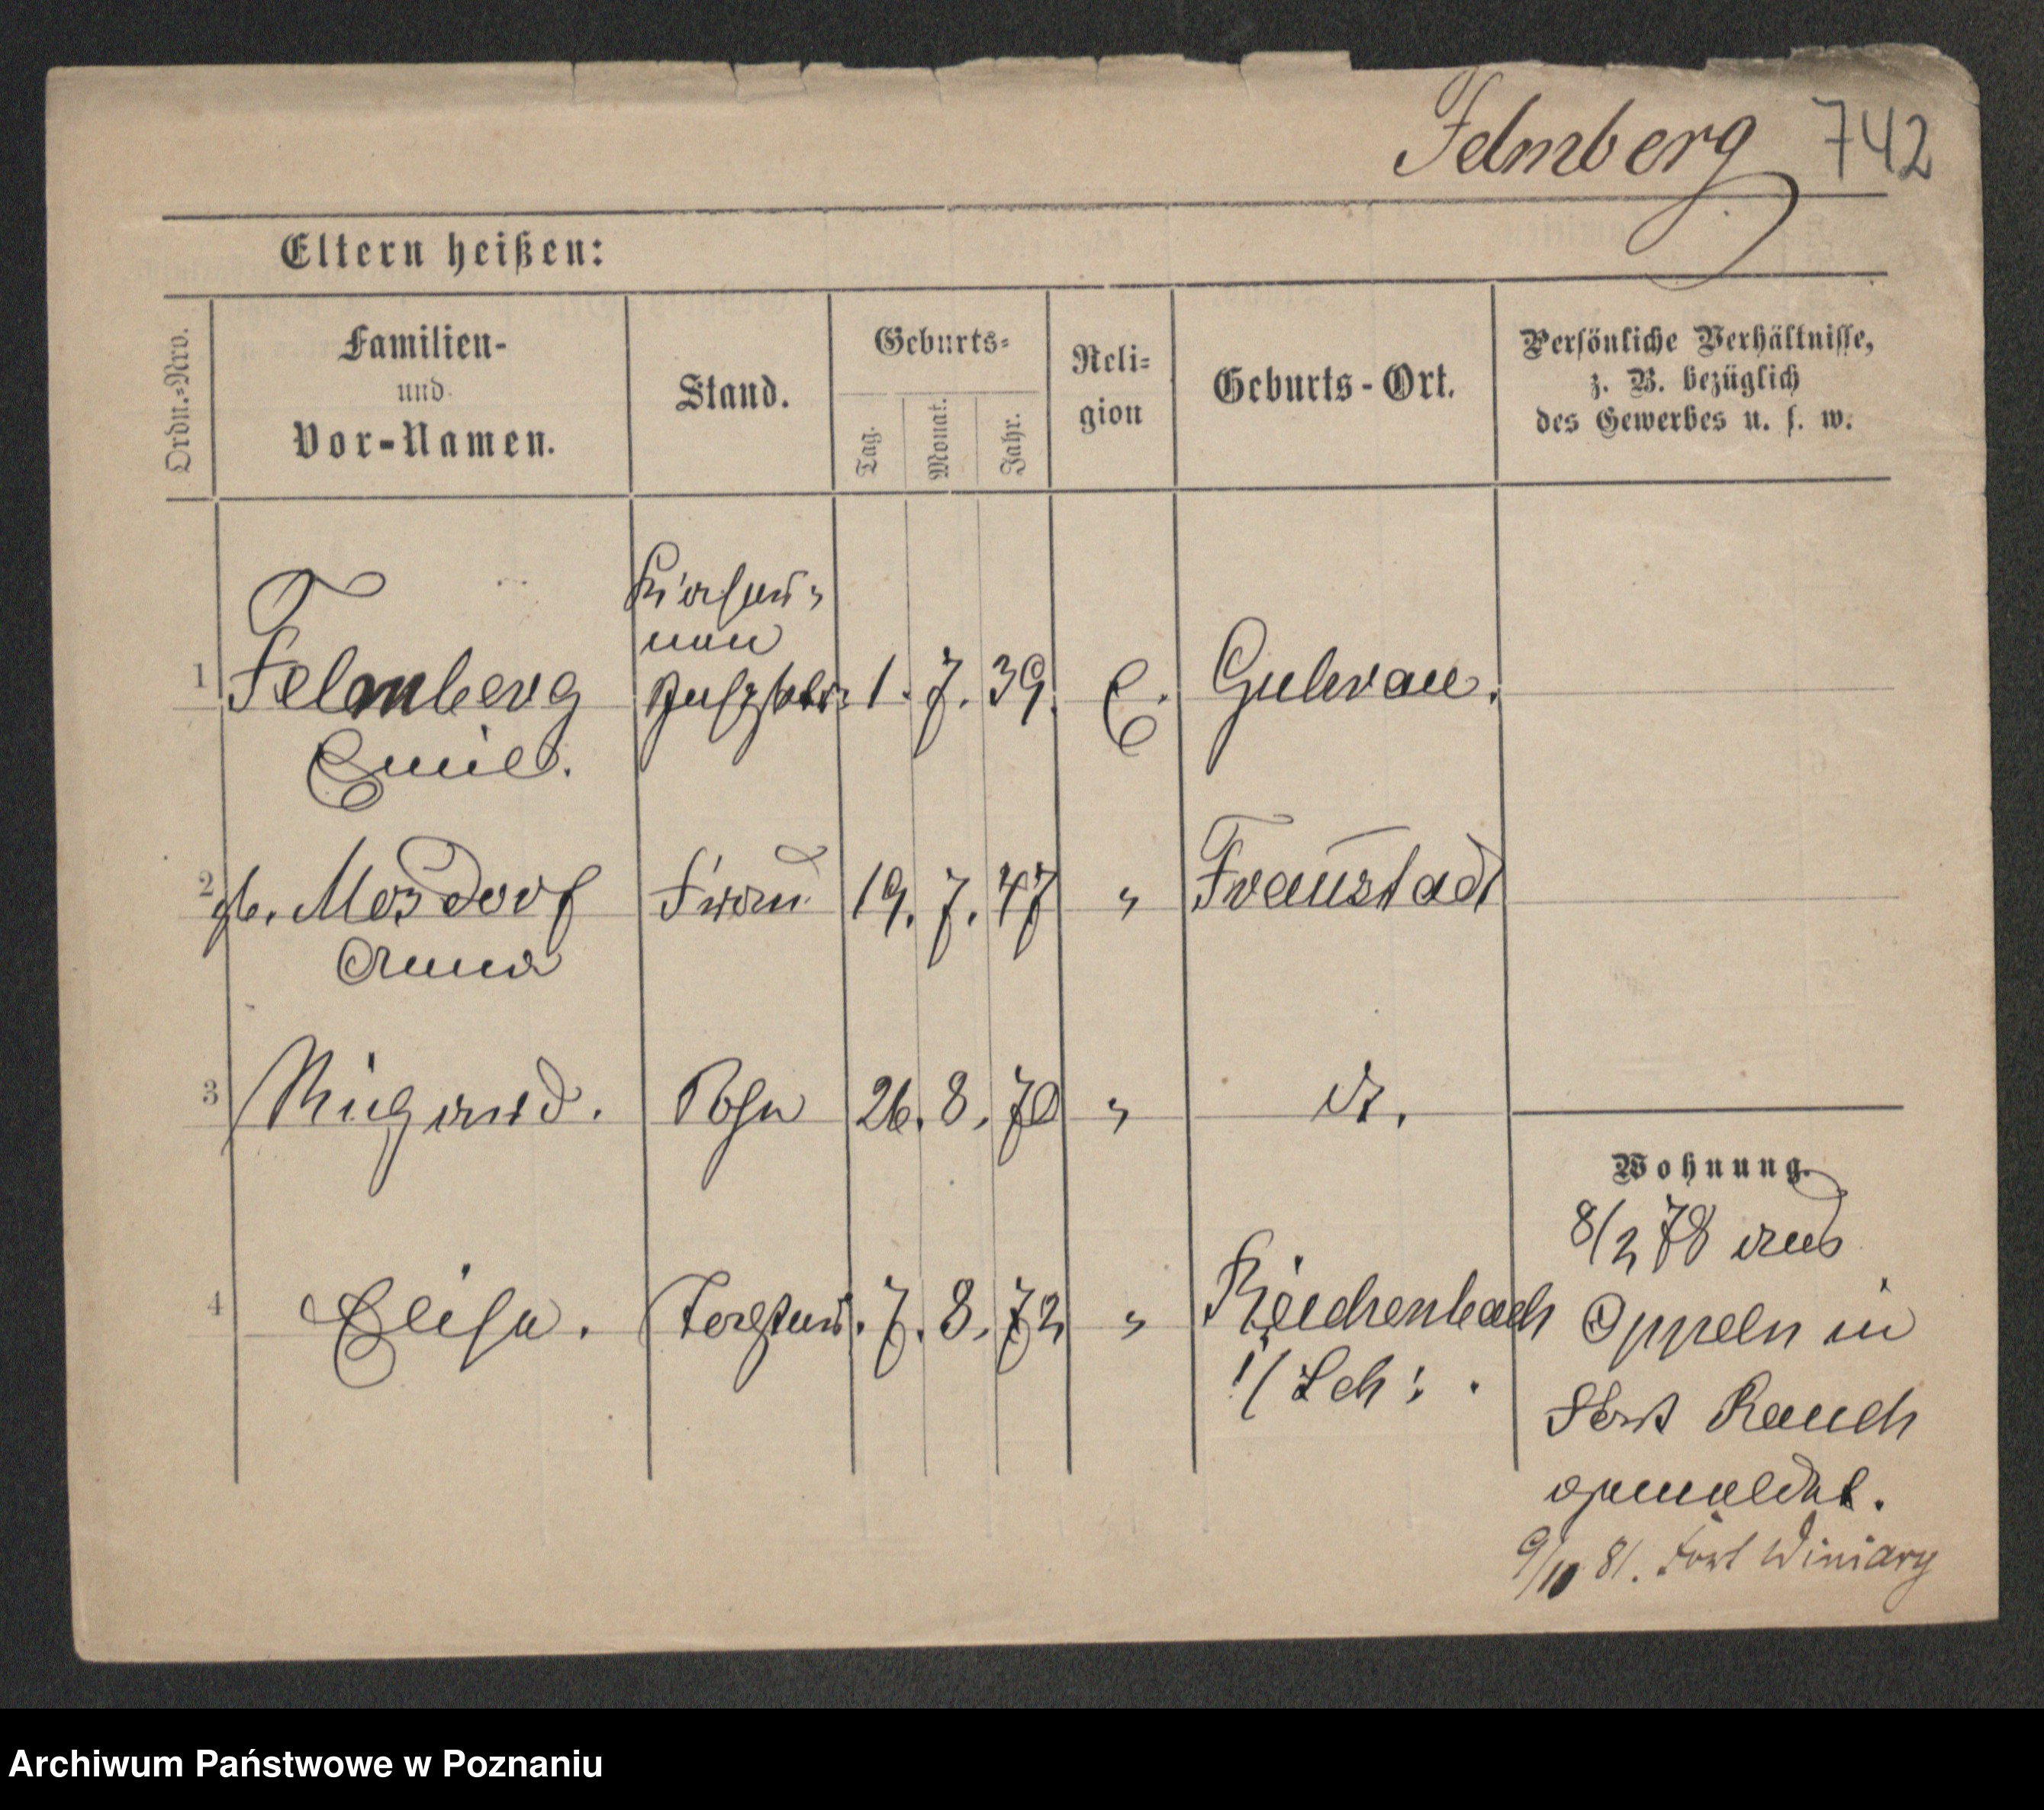 Felmberg 742
Eltern heißen:
Ordn.=Nro.
Familien-
und
Vor-Namen.
Stand.
Geburts=
Tag.
Monat.
Jahr.
Reli=
gion
Geburts-Ort.
Persönliche Verhältnisse,
z. B. bezüglich
des Gewerbes u. s. w.
1 Felmberg 1. 7. 39. E. Guhrau.
Emil.
2 gb. Mosdorf Frau 19. 7. 47 " Fraustadt
Anna
3 Wigand. Sohn 26. 8. 70 " do.
4 Elise. Tochter. 7. 8. 72 " Reichenbach
i/Sch:.
Wohnung.
8/2 78 aus
Oppeln in
Fort Rauch
gemeldet.
9/10 81. Fort Winiary
Archiwum Państwowe w Poznaniu